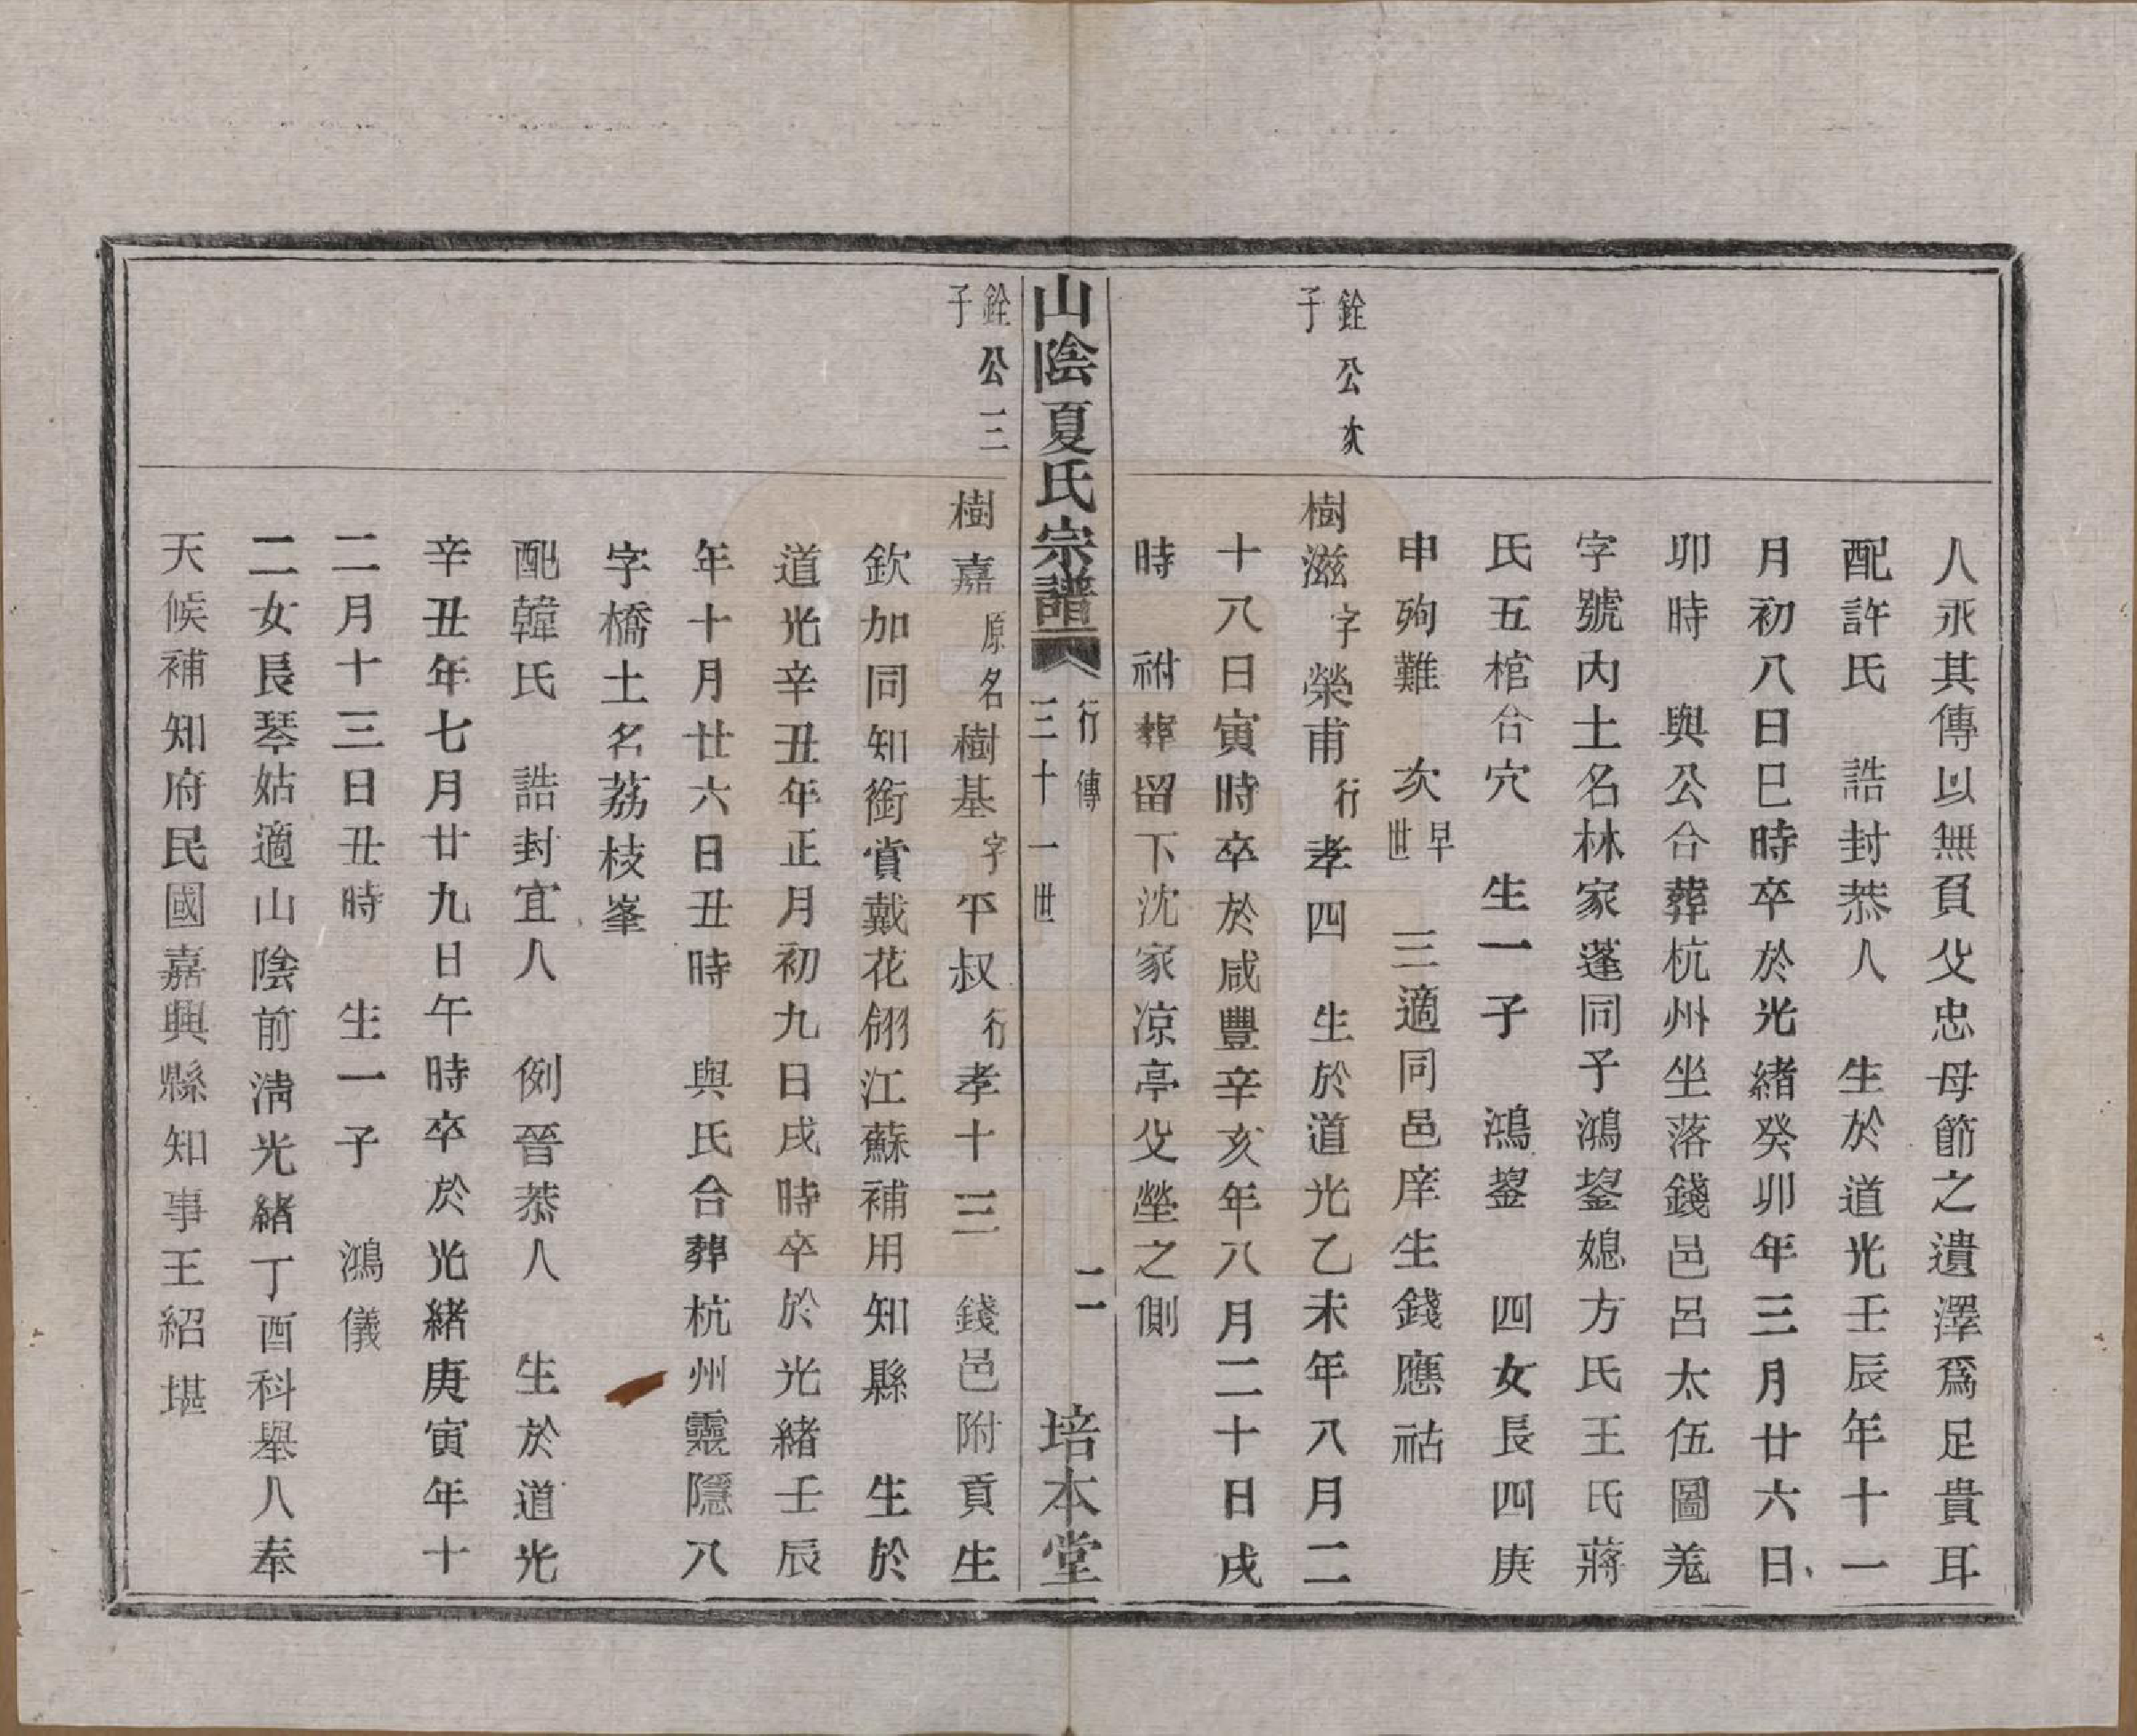 人永其傳以無負父忠母節之遺澤爲足貴耳
配許氏　誥封恭人　生於道光壬辰年十一
月初八日巳時卒於光緒癸卯年三月廿六日
卯時　與公合葬杭州坐落錢邑呂太伍圖羌
字號內土名林家蓬同子鴻鋆媳方氏王氏蔣
氏五棺合穴　生一子　鴻鋆　四女長四庚
申殉難　次早世　三適同邑庠生錢應祜
銓公次子
樹滋字榮甫行孝四　生於道光乙未年八月二
十八日寅時卒於咸豐辛亥年八月二十日戌
時　祔葬留下沈家凉亭父塋之側
山陰夏氏宗譜
行傳
三十一世
二
培本堂
銓公三子
樹嘉原名樹基字平叔行孝十三　錢邑附貢生
欽加同知銜賞戴花翎江蘇補用知縣　生於
道光辛丑年正月初九日戌時卒於光緒壬辰
年十月廿六日丑時　與氏合葬杭州靈隱八
字橋土名荔枝峯
配韓氏　誥封宜人　例晉恭人　生於道光
辛丑年七月廿九日午時卒於光緒庚寅年十
二月十三日丑時　生一子　鴻儀
二女長琴姑適山陰前清光緒丁酉科舉人奉
天候補知府民國嘉興縣知事王紹堪